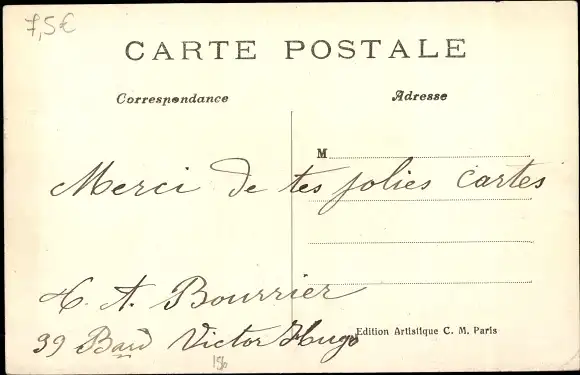 7,5€
CARTE POSTALE
Correspondance
Adresse
M
Merci de tes jolies cartes
A. Bourrier
39 Bard Victor Hugo
Edition Artistique C. M. Paris
156